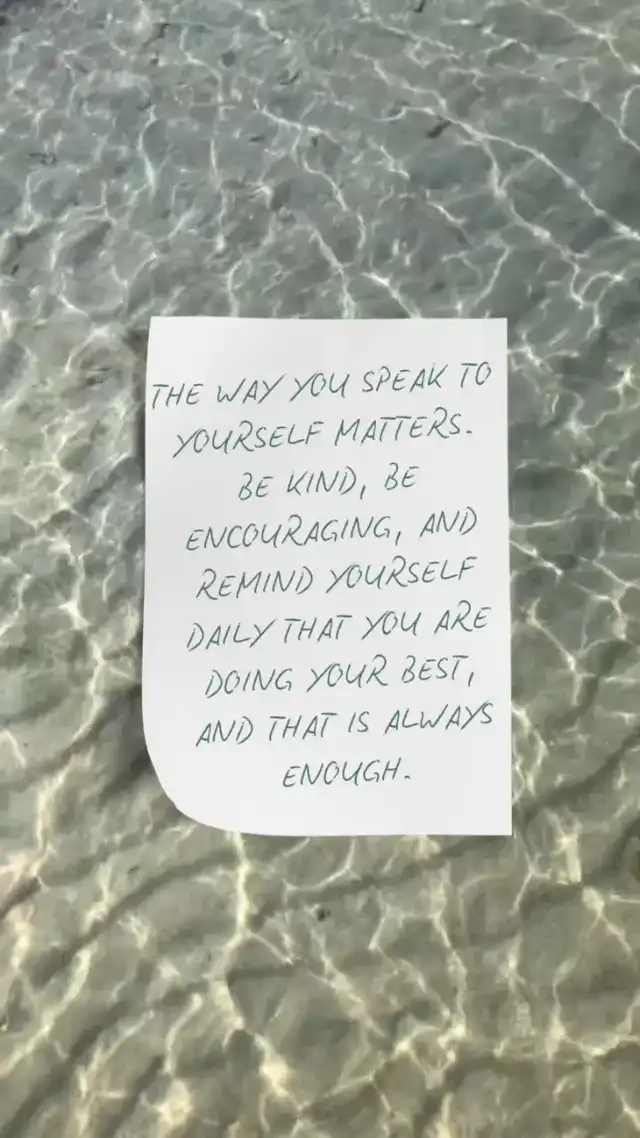 THE WAY YOU SPEAK TO
YOURSELF MATTERS.
BE KIND, BE
ENCOURAGING, AND
REMIND YOURSELF
DAILY THAT YOU ARE
DOING YOUR BEST,
AND THAT IS ALWAYS
ENOUGH.